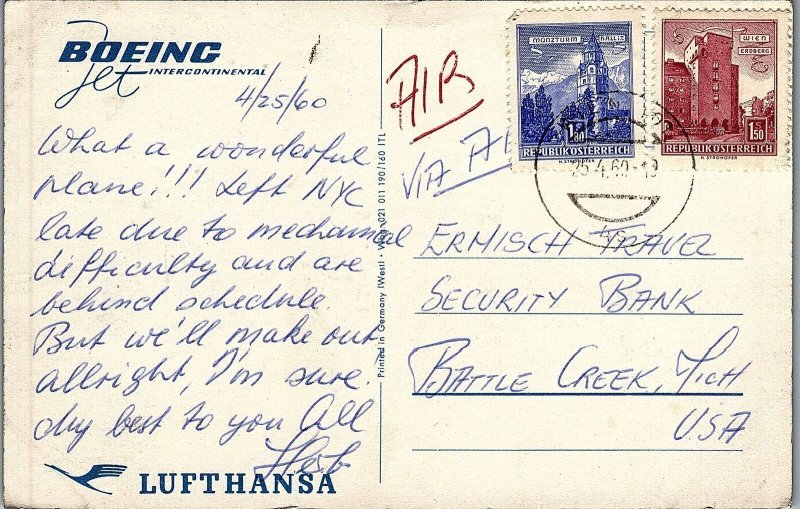 BOEING
Jet INTERCONTINENTAL
4/25/60
What a wonderful
plane!!! Left NYC
late due to mechanical
difficulty and are
behind schedule.
But we'll make out
allright, I'm sure.
My best to you All
Herb
LUFTHANSA
Printed in Germany (West) · 021 011 190/160 ITL
AIR
VIA
MÜNZTURM HALL i.T.
1.80
REPUBLIK ÖSTERREICH
H. STROHOFER
WIEN
ERDBERG
S
1.50
REPUBLIK ÖSTERREICH
H. STROHOFER
25.4.60-19
ERMISCH TRAVEL
SECURITY BANK
BATTLE CREEK, MICH
USA